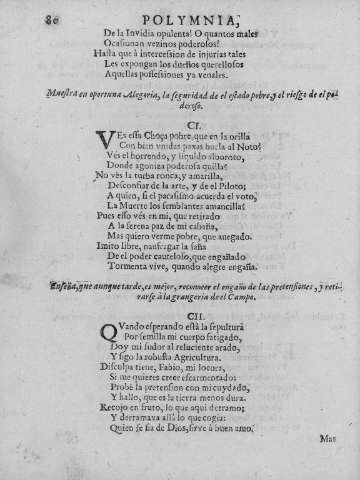 80 POLYMNIA,
De la Invidia opulenta! O quantos males
Ocasionan vezinos poderosos!
Hasta que à intercession de injurias tales
Les expongan los dueños querellosos
Aquellas possessiones ya venales.
Muestra en oportuna Alegoria, la seguridad de el estado pobre, y el riesgo de el poderoso.
CI.
VEs essa Choça pobre, que en la orilla
Con bien unidas paxas burla al Noto?
Vès el horrendo, y liquido alboroto,
Donde agoniza poderosa quilla?
No vès la turba ronca, y amarilla,
Desconfiar de la arte, y de el Piloto;
A quien, si el parasismo acuerda el voto,
La Muerte los semblantes amancilla?
Pues esso vès en mi, que retirado
A la serena paz de mi cabaña,
Mas quiero verme pobre, que anegado.
Imito libre, naufragar la saña
De el poder cauteloso, que engañado
Tormenta vive, quando alegre engaña.
Enseña, que aunque tarde, es mejor, reconocer el engaño de las pretensiones, y retirarse à la grangeria de el Campo.
CII.
QVando esperando està la sepultura
Por semilla mi cuerpo fatigado,
Doy mi sudor al reluciente arado,
Y sigo la robusta Agricultura.
Disculpa tiene, Fabio, mi locura,
Si me quieres creer escarmentado:
Probè la pretension con mi cuydado,
Y hallo, que es la tierra menos dura.
Recojo en fruto, lo que aqui derramo;
Y derramava allà lo que cogia:
Quien se fia de Dios, sirve à buen amo.
Mas